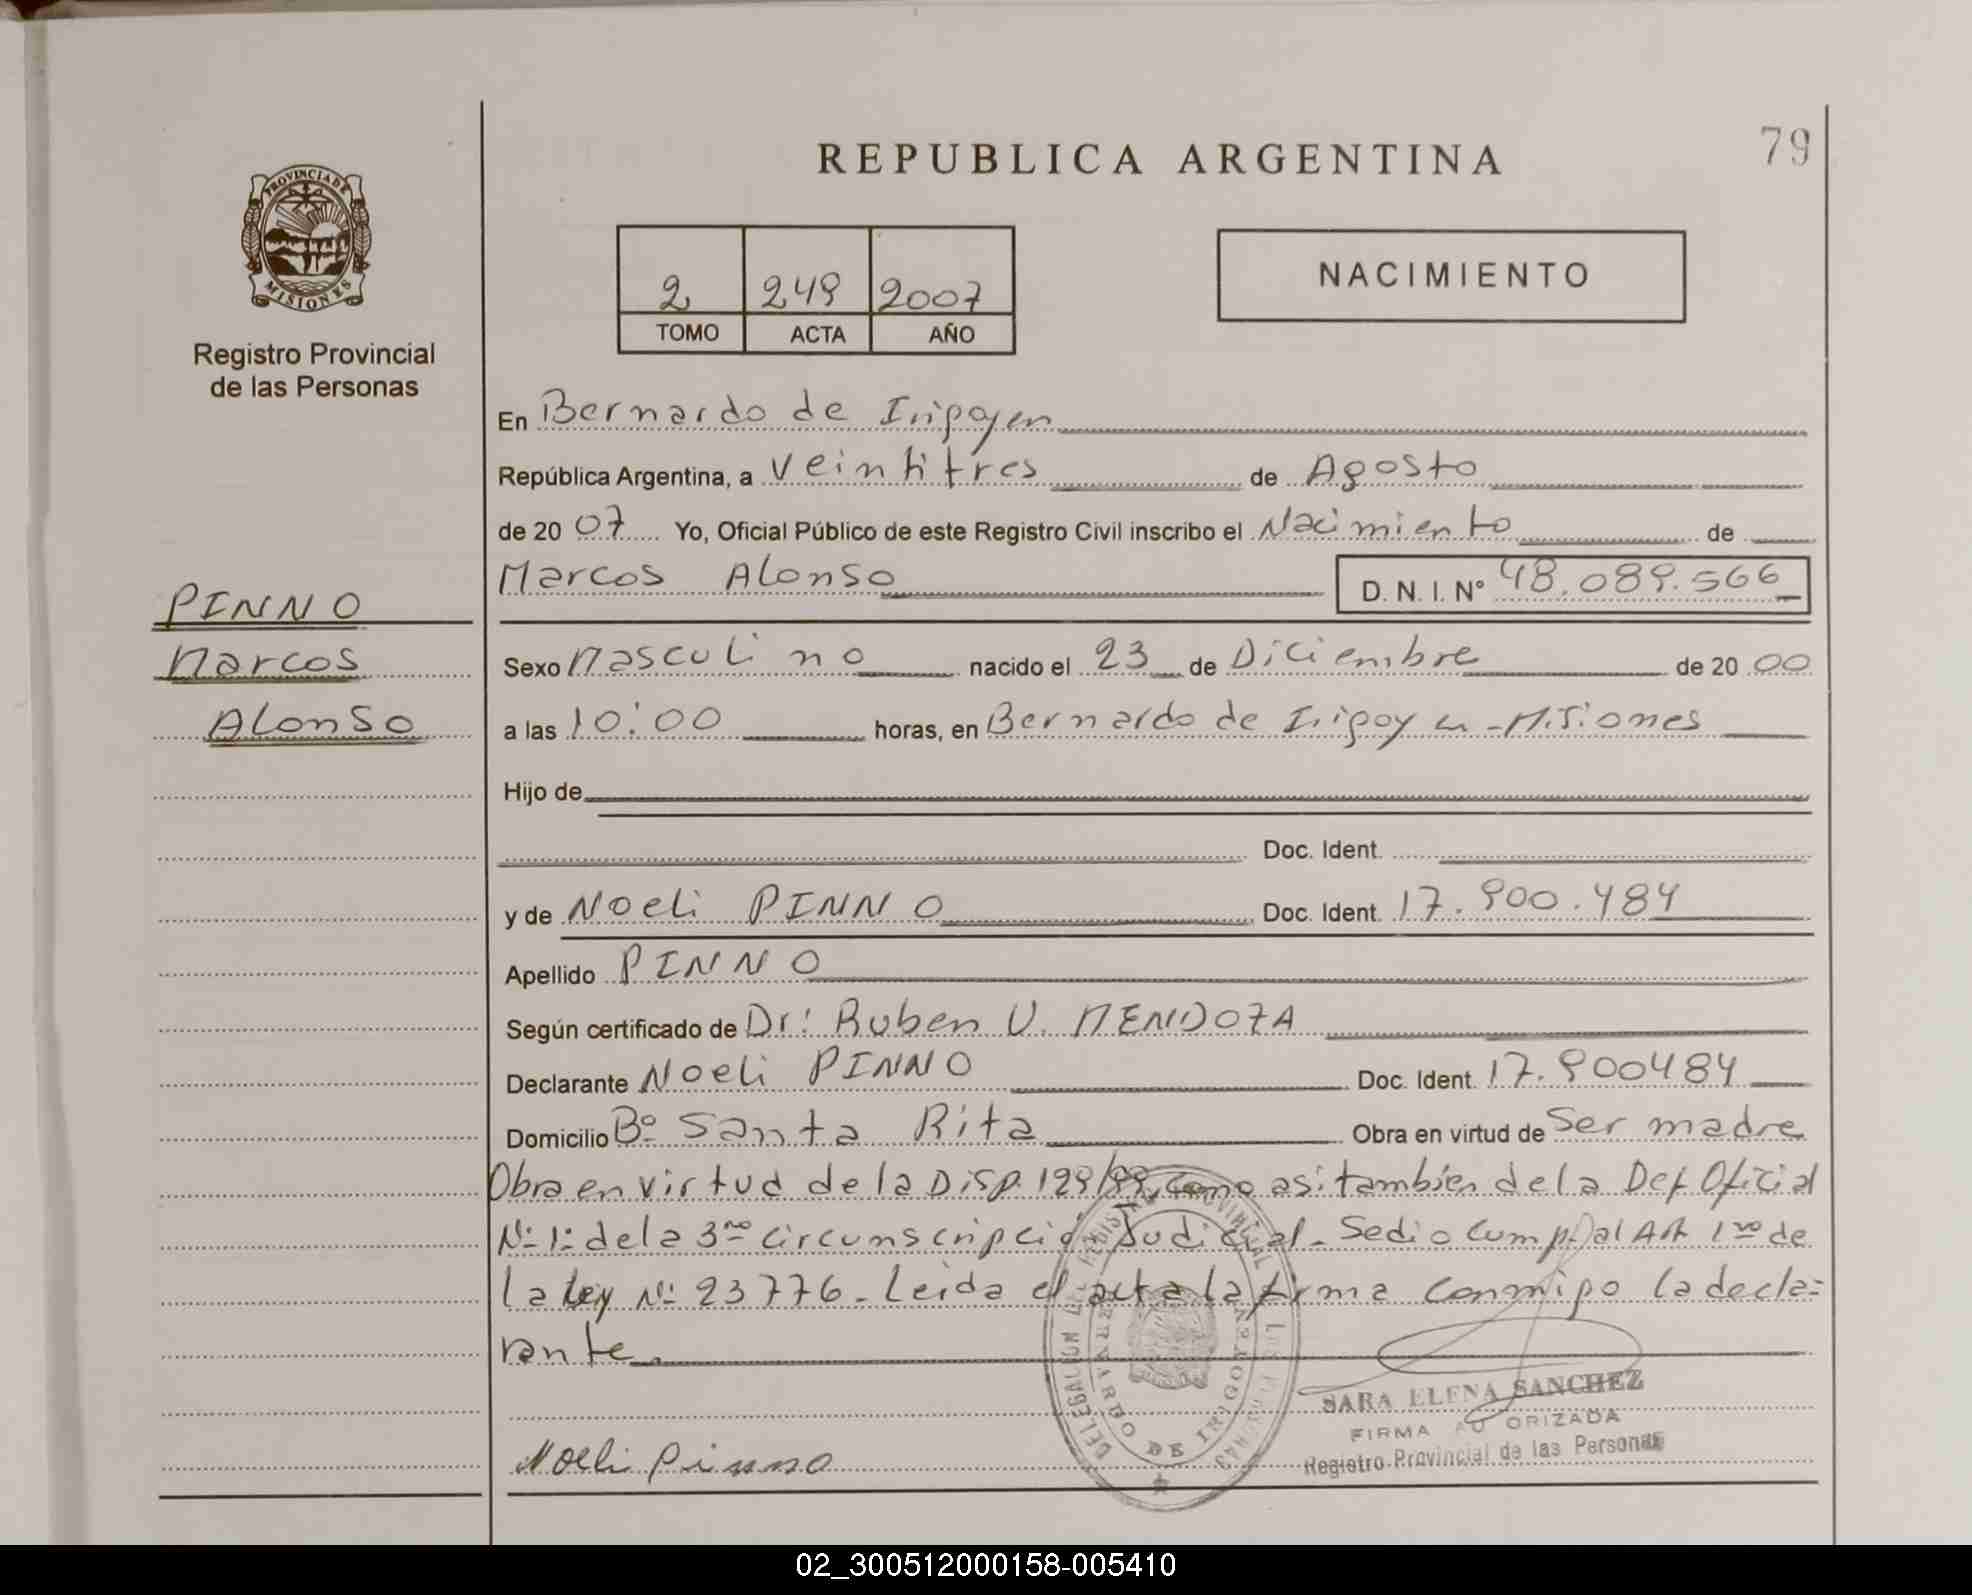 REPUBLICA ARGENTINA
79
PROVINCIA DE
MISIONES
Registro Provincial
de las Personas
2 249 2007
TOMO ACTA AÑO
NACIMIENTO
En Bernardo de Irigoyen
República Argentina, a Veintitres de Agosto
de 20 07 Yo, Oficial Público de este Registro Civil inscribo el Nacimiento de
Marcos Alonso D. N. I. Nº 48.089.566
PINNO
Marcos
Alonso
Sexo Masculino nacido el 23 de Diciembre de 20 00
a las 10:00 horas, en Bernardo de Irigoyen - Misiones
Hijo de
Doc. Ident.
y de Noeli PINNO Doc. Ident. 17.900.484
Apellido PINNO
Según certificado de Dr: Ruben U. MENDOZA
Declarante Noeli PINNO Doc. Ident. 17.900484
Domicilio Bº Santa Rita Obra en virtud de Ser madre
Obra en virtud de la Disp. 129/99, Como asi tambien de la Def Oficial
Nº 1º de la 3ra Circunscripción Judicial - Se dio Cump. al Art 1ro de
la Ley Nº 23776 - Leida el acta la firma Conmigo la decla=
rante.
DELEGACION DEL REGISTRO PROVINCIAL DE LAS PERSONAS
BERNARDO DE IRIGOYEN
SARA ELENA SANCHEZ
FIRMA AUTORIZADA
Registro Provincial de las Personas
Noeli Pinno
02_300512000158-005410